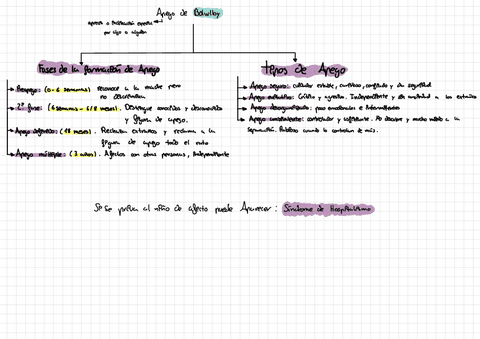 Apego de Bolwlby
apoyo o
por algo o alguien
Fases de la formación de Apego
Preapego: (0-6 semanas) reconoce a la madre pero
no discrimina
2ª fase: (6 semanas - 6/8 meses). Distingue conocidos y desconocidos
y figura de apego.
Apego definido: (18 meses). Rechazan extraños y reclaman a la
figura de apego todo el rato
Apego múltiple: (3 años). Afectos con otras personas, Independiente
tipos de Apego
Apego seguro: cuidador estable, cariñoso, confiado y da seguridad
Apego evitativo: Crítico y agresivo. Independiente y a los extraños
Apego desorganizado: poco emocional e
Apego ambivalente: controlador y asfixiante. No descubre y mucho miedo a la
separación. cuando lo controlan de más.
Si se priva al niño de afecto puede Aparecer: Síndrome de Hospitalismo